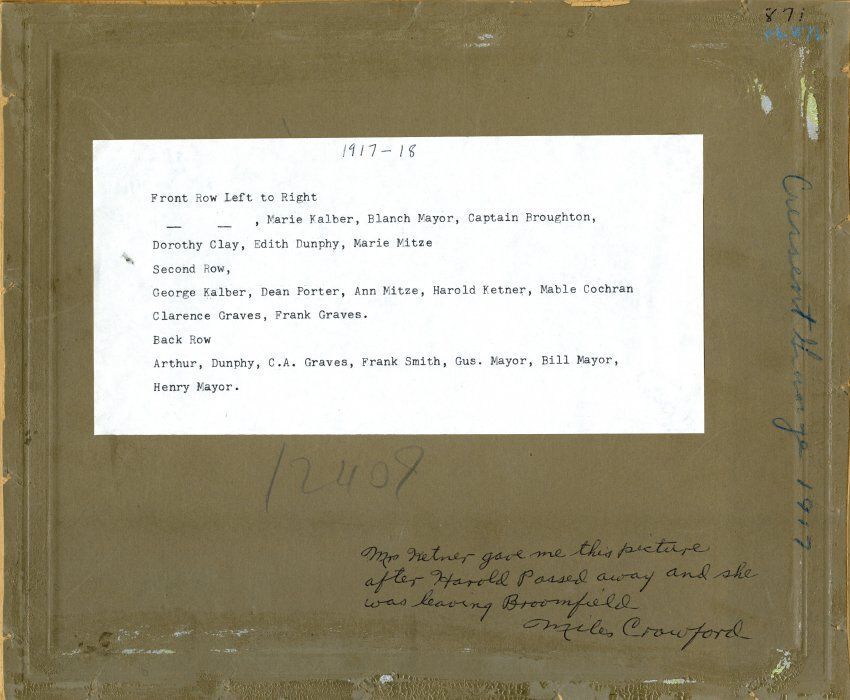 871
1917-18
Front Row Left to Right
__ __ , Marie Kalber, Blanch Mayor, Captain Broughton,
Dorothy Clay, Edith Dunphy, Marie Mitze
Second Row,
George Kalber, Dean Porter, Ann Mitze, Harold Ketner, Mable Cochran
Clarence Graves, Frank Graves.
Back Row
Arthur, Dunphy, C.A. Graves, Frank Smith, Gus. Mayor, Bill Mayor,
Henry Mayor.
12409
Mrs Ketner gave me this picture
after Harold Passed away and she
was leaving Broomfield
Miles Crawford
1917